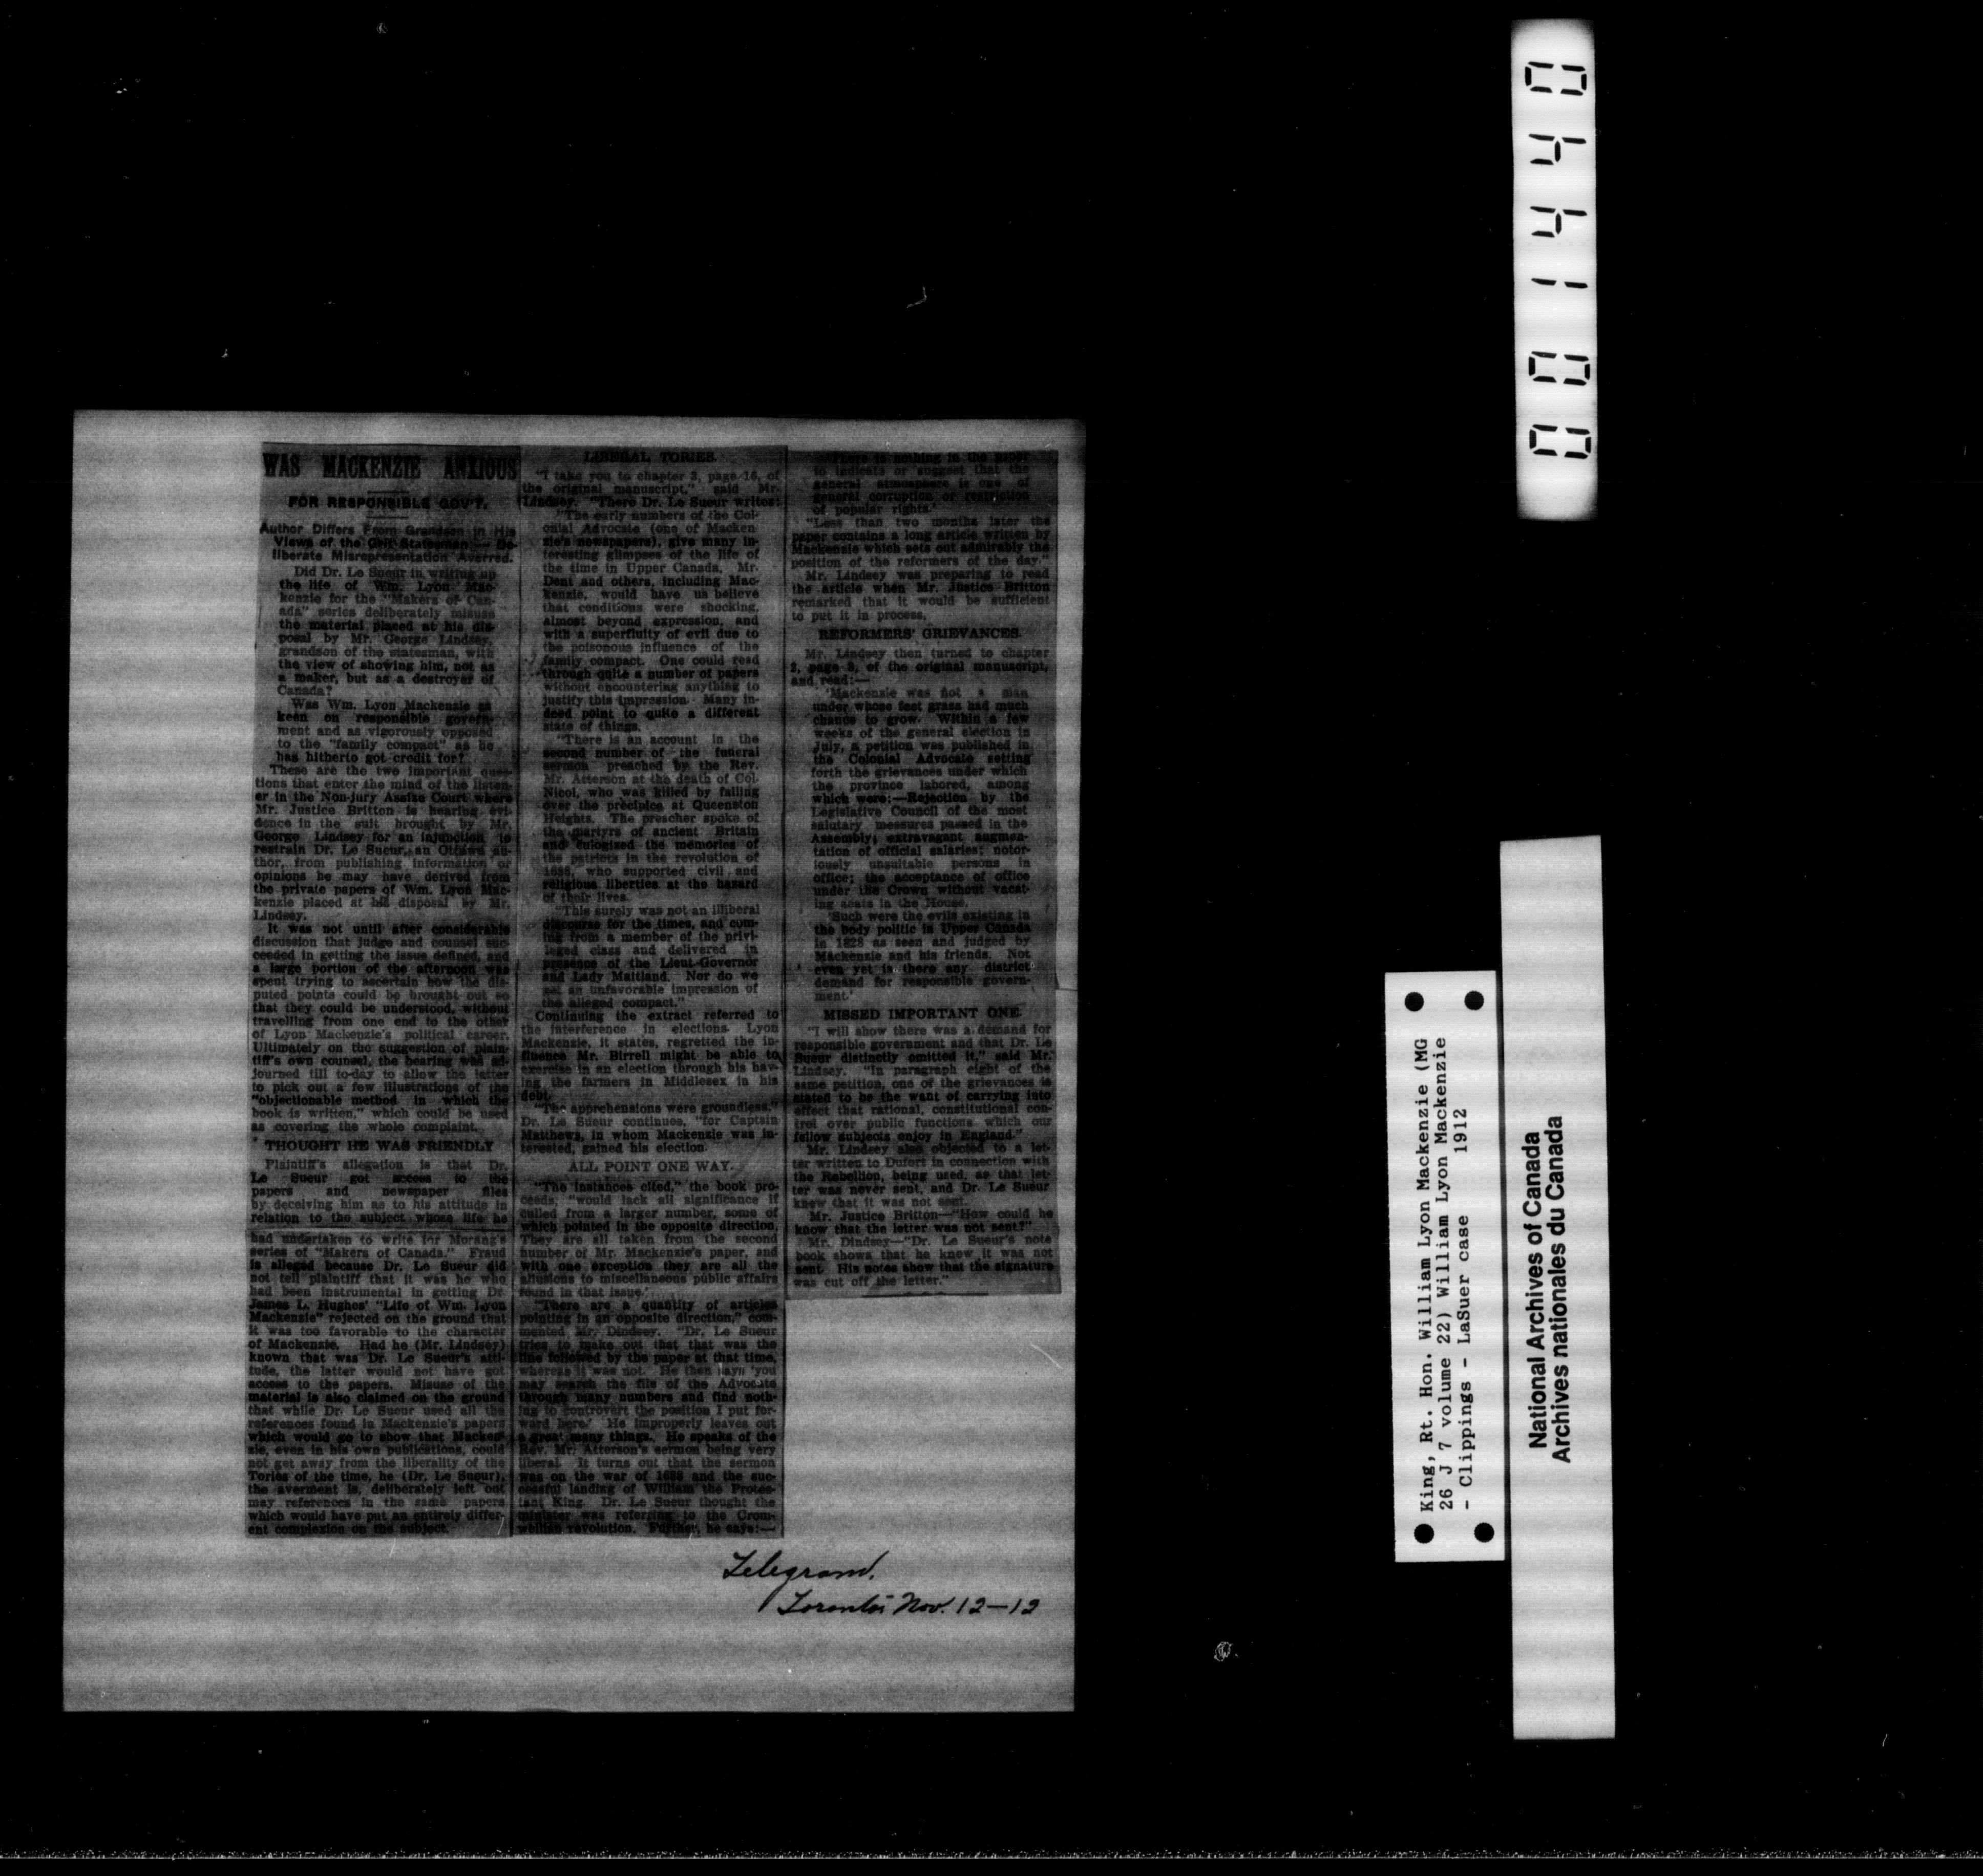 WAS MACKENZIE ANXIOUS
FOR RESPONSIBLE GOV'T.
Author Differs From Grandson in His
Views of the Grit Statesman — De-
liberate Misrepresentation Averred.
Did Dr. Le Sueur in writing up
the life of Wm. Lyon Mac-
kenzie for the "Makers of Can-
ada" series deliberately misuse
the material placed at his dis-
posal by Mr. George Lindsey,
grandson of the statesman, with
the view of showing him, not as
a maker, but as a destroyer of
Canada?
Was Wm. Lyon Mackenzie as
keen on responsible govern-
ment and as vigorously opposed
to the "family compact" as he
has hitherto got credit for?
These are the two important ques-
tions that enter the mind of the listen-
er in the Non-jury Assize Court where
Mr. Justice Britton is hearing evi-
dence in the suit brought by Mr.
George Lindsey for an injunction to
restrain Dr. Le Sueur, an Ottawa au-
thor, from publishing information or
opinions he may have derived from
the private papers of Wm. Lyon Mac-
kenzie placed at his disposal by Mr.
Lindsey.
It was not until after considerable
discussion that judge and counsel suc-
ceeded in getting the issue defined, and
a large portion of the afternoon was
spent trying to ascertain how the dis-
puted points could be brought out so
that they could be understood, without
travelling from one end to the other
of Lyon Mackenzie's political career.
Ultimately on the suggestion of plain-
tiff's own counsel, the hearing was ad-
journed till to-day to allow the latter
to pick out a few illustrations of the
"objectionable method in which the
book is written," which could be used
as covering the whole complaint.
THOUGHT HE WAS FRIENDLY
Plaintiff's allegation is that Dr.
Le Sueur got access to the
papers and newspaper files
by deceiving him as to his attitude in
relation to the subject whose life he
had undertaken to write for Morang's
series of "Makers of Canada." Fraud
is alleged because Dr. Le Sueur did
not tell plaintiff that it was he who
had been instrumental in getting Dr.
James L. Hughes' "Life of Wm. Lyon
Mackenzie" rejected on the ground that
it was too favorable to the character
of Mackenzie. Had he (Mr. Lindsey)
known that was Dr. Le Sueur's atti-
tude, the latter would not have got
access to the papers. Misuse of the
material is also claimed on the ground
that while Dr. Le Sueur used all the
references found in Mackenzie's papers
which would go to show that Macken-
zie, even in his own publications, could
not get away from the liberality of the
Tories of the time, he (Dr. Le Sueur),
the averment is, deliberately left out
may references in the same papers
which would have put an entirely differ-
ent complexion on the subject.
LIBERAL TORIES.
"I take you to chapter 2, page 16, of
the original manuscript," said Mr.
Lindsey. "There Dr. Le Sueur writes:
"The early numbers of the Col-
onial Advocate (one of Macken
zie's newspapers), give many in-
teresting glimpses of the life of
the time in Upper Canada. Mr.
Dent and others, including Mac-
kenzie, would have us believe
that conditions were shocking,
almost beyond expression, and
with a superfluity of evil due to
the poisonous influence of the
family compact. One could read
through quite a number of papers
without encountering anything to
justify this impression. Many in-
deed point to quite a different
state of things.
"There is an account in the
second number of the funeral
sermon preached by the Rev.
Mr. Atterson at the death of Col.
Nicol, who was killed by falling
over the precipice at Queenston
Heights. The preacher spoke of
the martyrs of ancient Britain
and eulogised the memories of
the patriots in the revolution of
1688, who supported civil and
religious liberties at the hazard
of their lives.
"This surely was not an illiberal
discourse for the times, and com-
ing from a member of the privi-
leged class and delivered in
presence of the Lieut-Governor
and Lady Maitland. Nor do we
get an unfavorable impression of
the alleged compact."
Continuing the extract referred to
the interference in elections. Lyon
Mackenzie, it states, regretted the in-
fluence Mr. Birrell might be able to
exercise in an election through his hav-
ing the farmers in Middlesex in his
debt.
"The apprehensions were groundless,"
Dr. Le Sueur continues, "for Captain
Matthews, in whom Mackenzie was in-
terested, gained his election.
ALL POINT ONE WAY.
"The instances cited," the book pro-
ceeds, "would lack all significance if
culled from a larger number, some of
which pointed in the opposite direction.
They are all taken from the second
number of Mr. Mackenzie's paper, and
with one exception they are all the
allusions to miscellaneous public affairs
found in that issue.'
"There are a quantity of articles
pointing in an opposite direction," com-
mented Mr. Dindsey. "Dr. Le Sueur
tries to make out that that was the
line followed by the paper at that time,
whereas it was not. He then says 'you
may search the file of the Advocate
through many numbers and find noth-
ing to controvert the position I put for-
ward here.' He improperly leaves out
a great many things. He speaks of the
Rev. Mr. Atterson's sermon being very
liberal. It turns out that the sermon
was on the war of 1688 and the suc-
cessful landing of William the Protes-
tant King. Dr. Le Sueur thought the
minister was referring to the Crom-
wellian revolution. Further, he says:—
'There is nothing in the paper
to indicate or suggest that the
general atmosphere is one of
general corruption or restriction
of popular rights.'
"Less than two months later the
paper contains a long article written by
Mackenzie which sets out admirably the
position of the reformers of the day."
Mr. Lindsey was preparing to read
the article when Mr. Justice Britton
remarked that it would be sufficient
to put it in process.
REFORMERS' GRIEVANCES.
Mr. Lindsey then turned to chapter
2, page 3, of the original manuscript,
and read:—
'Mackenzie was not a man
under whose feet grass had much
chance to grow. Within a few
weeks of the general election in
July, a petition was published in
the Colonial Advocate setting
forth the grievances under which
the province labored, among
which were:—Rejection by the
Legislative Council of the most
salutary measures passed in the
Assembly; extravagant augmen-
tation of official salaries; notor-
iously unsuitable persons in
office; the acceptance of office
under the Crown without vacat-
ing seats in the House.
'Such were the evils existing in
the body politic in Upper Canada
in 1828 as seen and judged by
Mackenzie and his friends. Not
even yet is there any district
demand for responsible govern-
ment.'
MISSED IMPORTANT ONE.
"I will show there was a demand for
responsible government and that Dr. Le
Sueur distinctly omitted it," said Mr.
Lindsey. "In paragraph eight of the
same petition, one of the grievances is
stated to be the want of carrying into
effect that rational, constitutional con-
trol over public functions which our
fellow subjects enjoy in England."
Mr. Lindsey also objected to a let-
ter written to Dufort in connection with
the Rebellion, being used, as that let-
ter was never sent, and Dr. Le Sueur
knew that it was not sent.
Mr. Justice Britton—"How could he
know that the letter was not sent?"
Mr. Dindsey—"Dr. Le Sueur's note
book shows that he knew it was not
sent. His notes show that the signature
was cut off the letter."
Telegram.
Toronto Nov. 12—12
004140
King, Rt. Hon. William Lyon Mackenzie (MG
26 J 7 volume 22) William Lyon Mackenzie
- Clippings - LaSuer case 1912
National Archives of Canada
Archives nationales du Canada